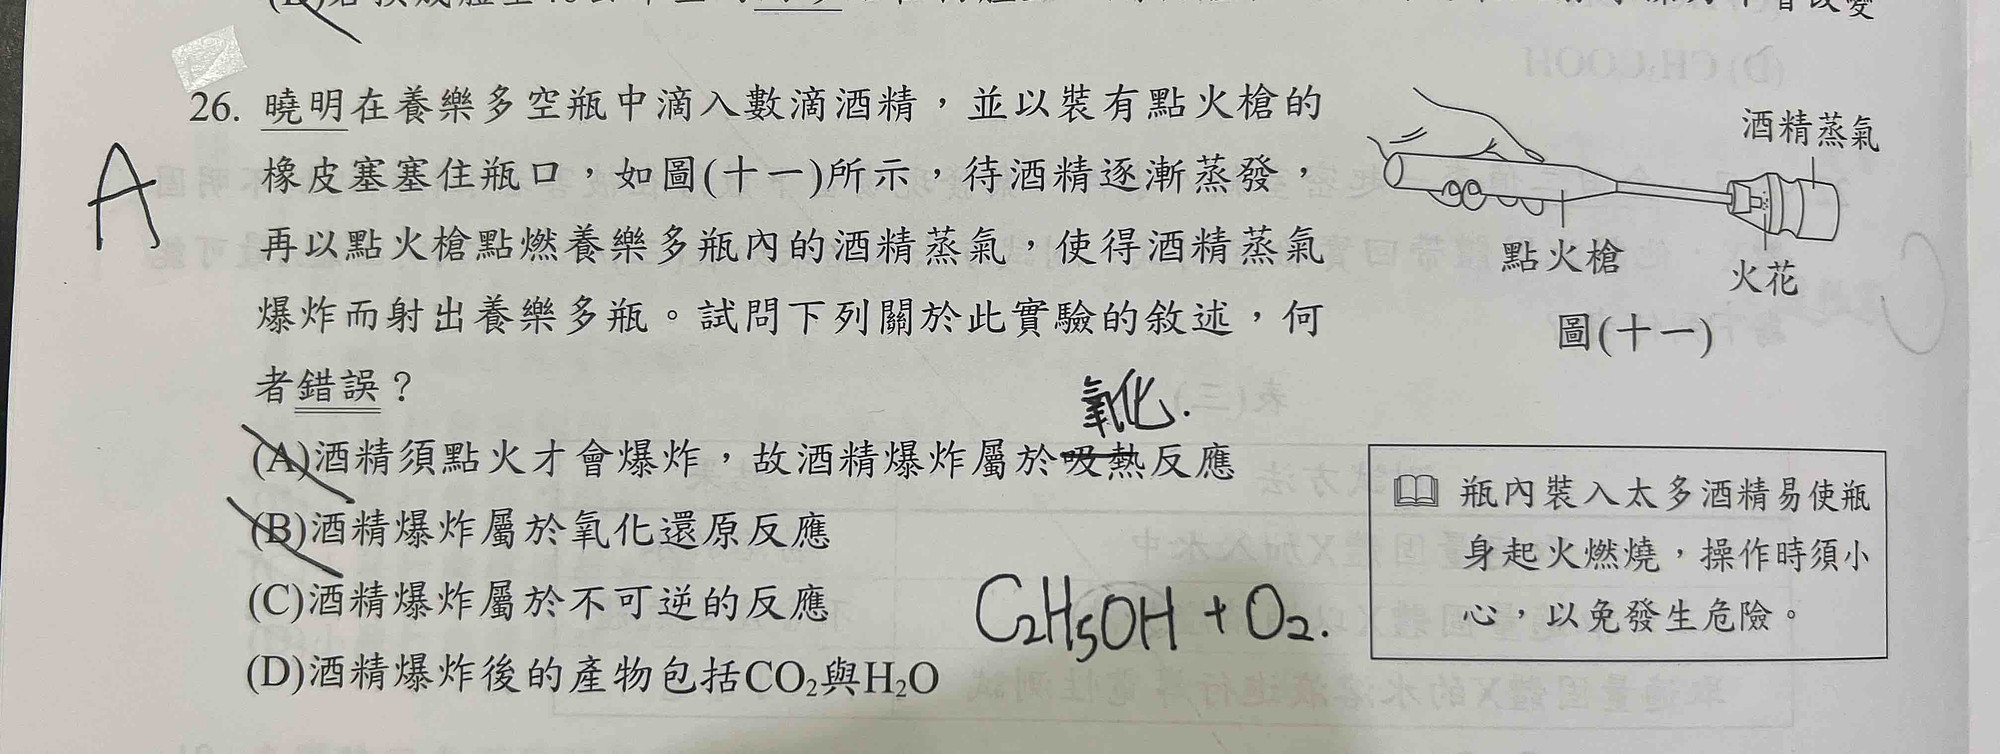 26. 曉明在養樂多空瓶中滴入數滴酒精，並以裝有點火槍的
橡皮塞塞住瓶口，如圖(十一)所示，待酒精逐漸蒸發，
再以點火槍點燃養樂多瓶內的酒精蒸氣，使得酒精蒸氣
爆炸而射出養樂多瓶。試問下列關於此實驗的敘述，何
者錯誤？
A
氧化.
(A)酒精須點火才會爆炸，故酒精爆炸屬於吸熱反應
(B)酒精爆炸屬於氧化還原反應
(C)酒精爆炸屬於不可逆的反應
(D)酒精爆炸後的產物包括CO₂與H₂O
C₂H₅OH + O₂.
酒精蒸氣
點火槍
火花
圖(十一)
瓶內裝入太多酒精易使瓶
身起火燃燒，操作時須小
心，以免發生危險。